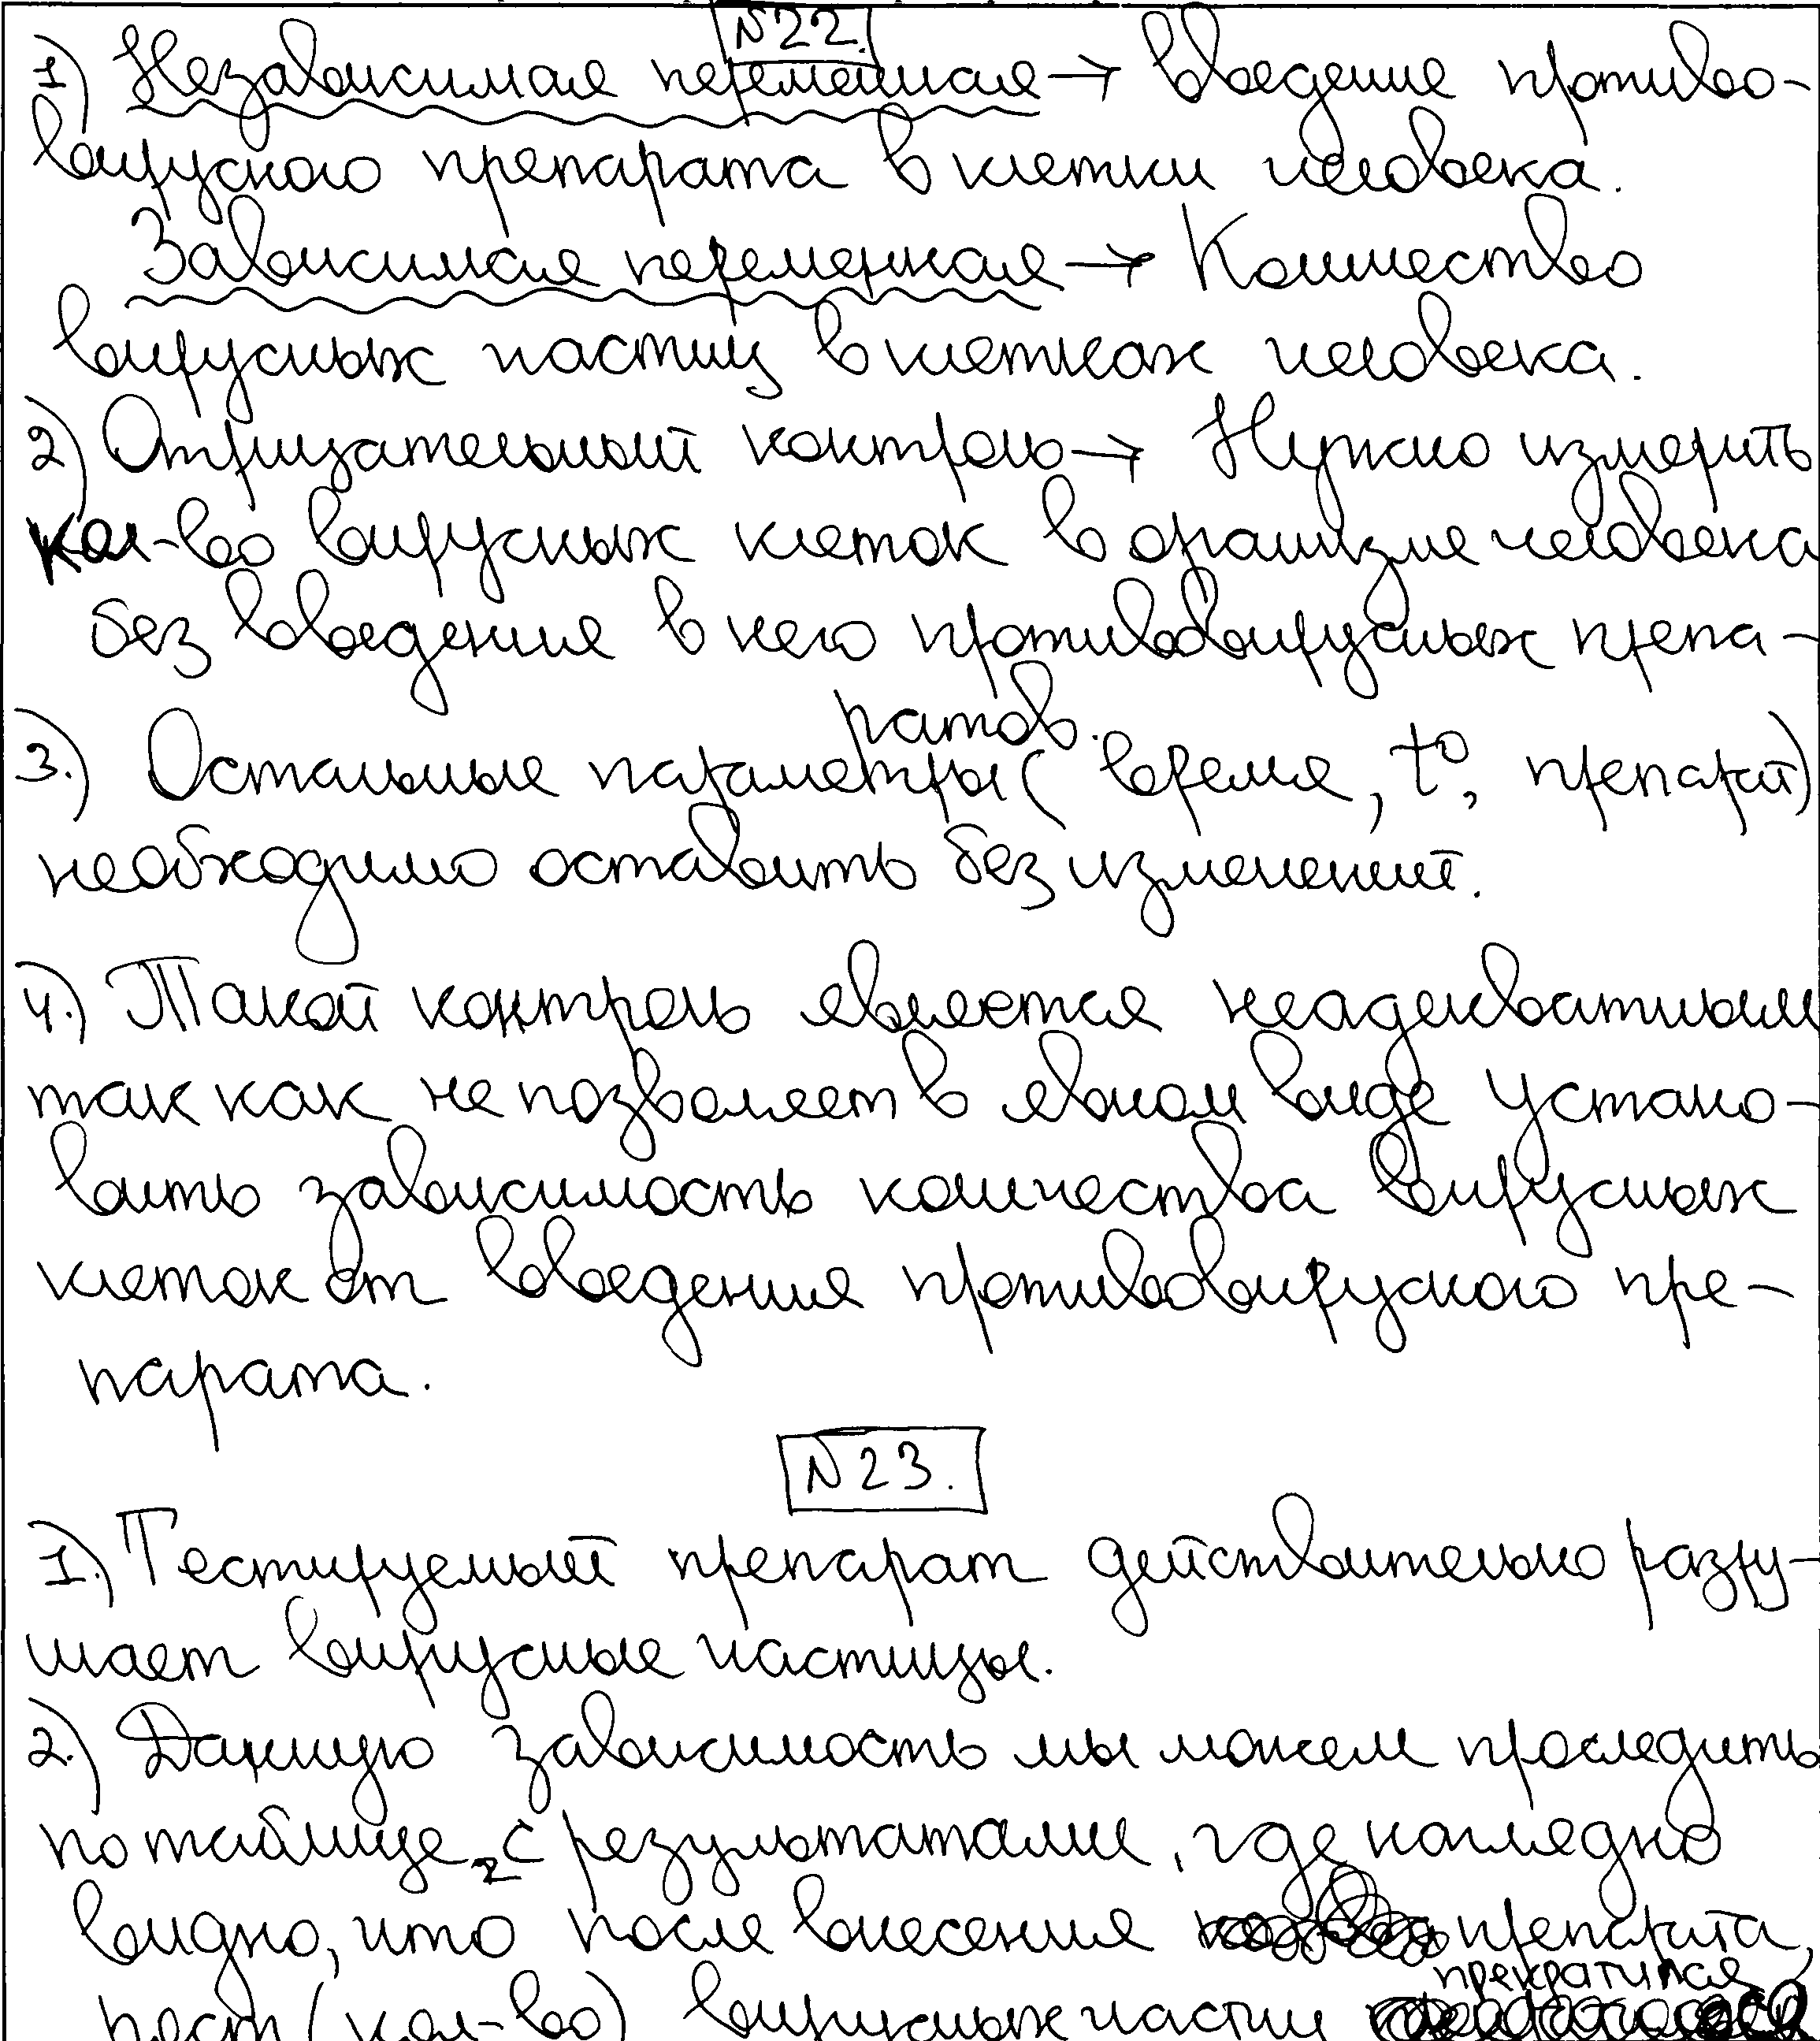 №22.
1) Независимая переменная → введение противо-
вирусного препарата в клетки человека.
Зависимая переменная → Количество
вирусных частиц в клетках человека.
2) Отрицательный контроль → Нужно измерить
кол-во вирусных клеток в организме человека
без введения в него противовирусных препа-
ратов.
3.) Остальные параметры (время, t°, препарат)
необходимо оставить без изменений.
4.) Такой контроль является неадекватным
так как не позволяет в явном виде устано-
вить зависимость количества вирусных
клеток от введения противовирусного пре-
парата.
№23.
1.) Тестируемый препарат действительно разру-
шает вирусные частицы.
2.) Данную зависимость мы можем проследить
по таблице 2 с результатами, где наглядно
видно, что после внесения препарата,
рост (кол-во) вирусных частиц прекратился